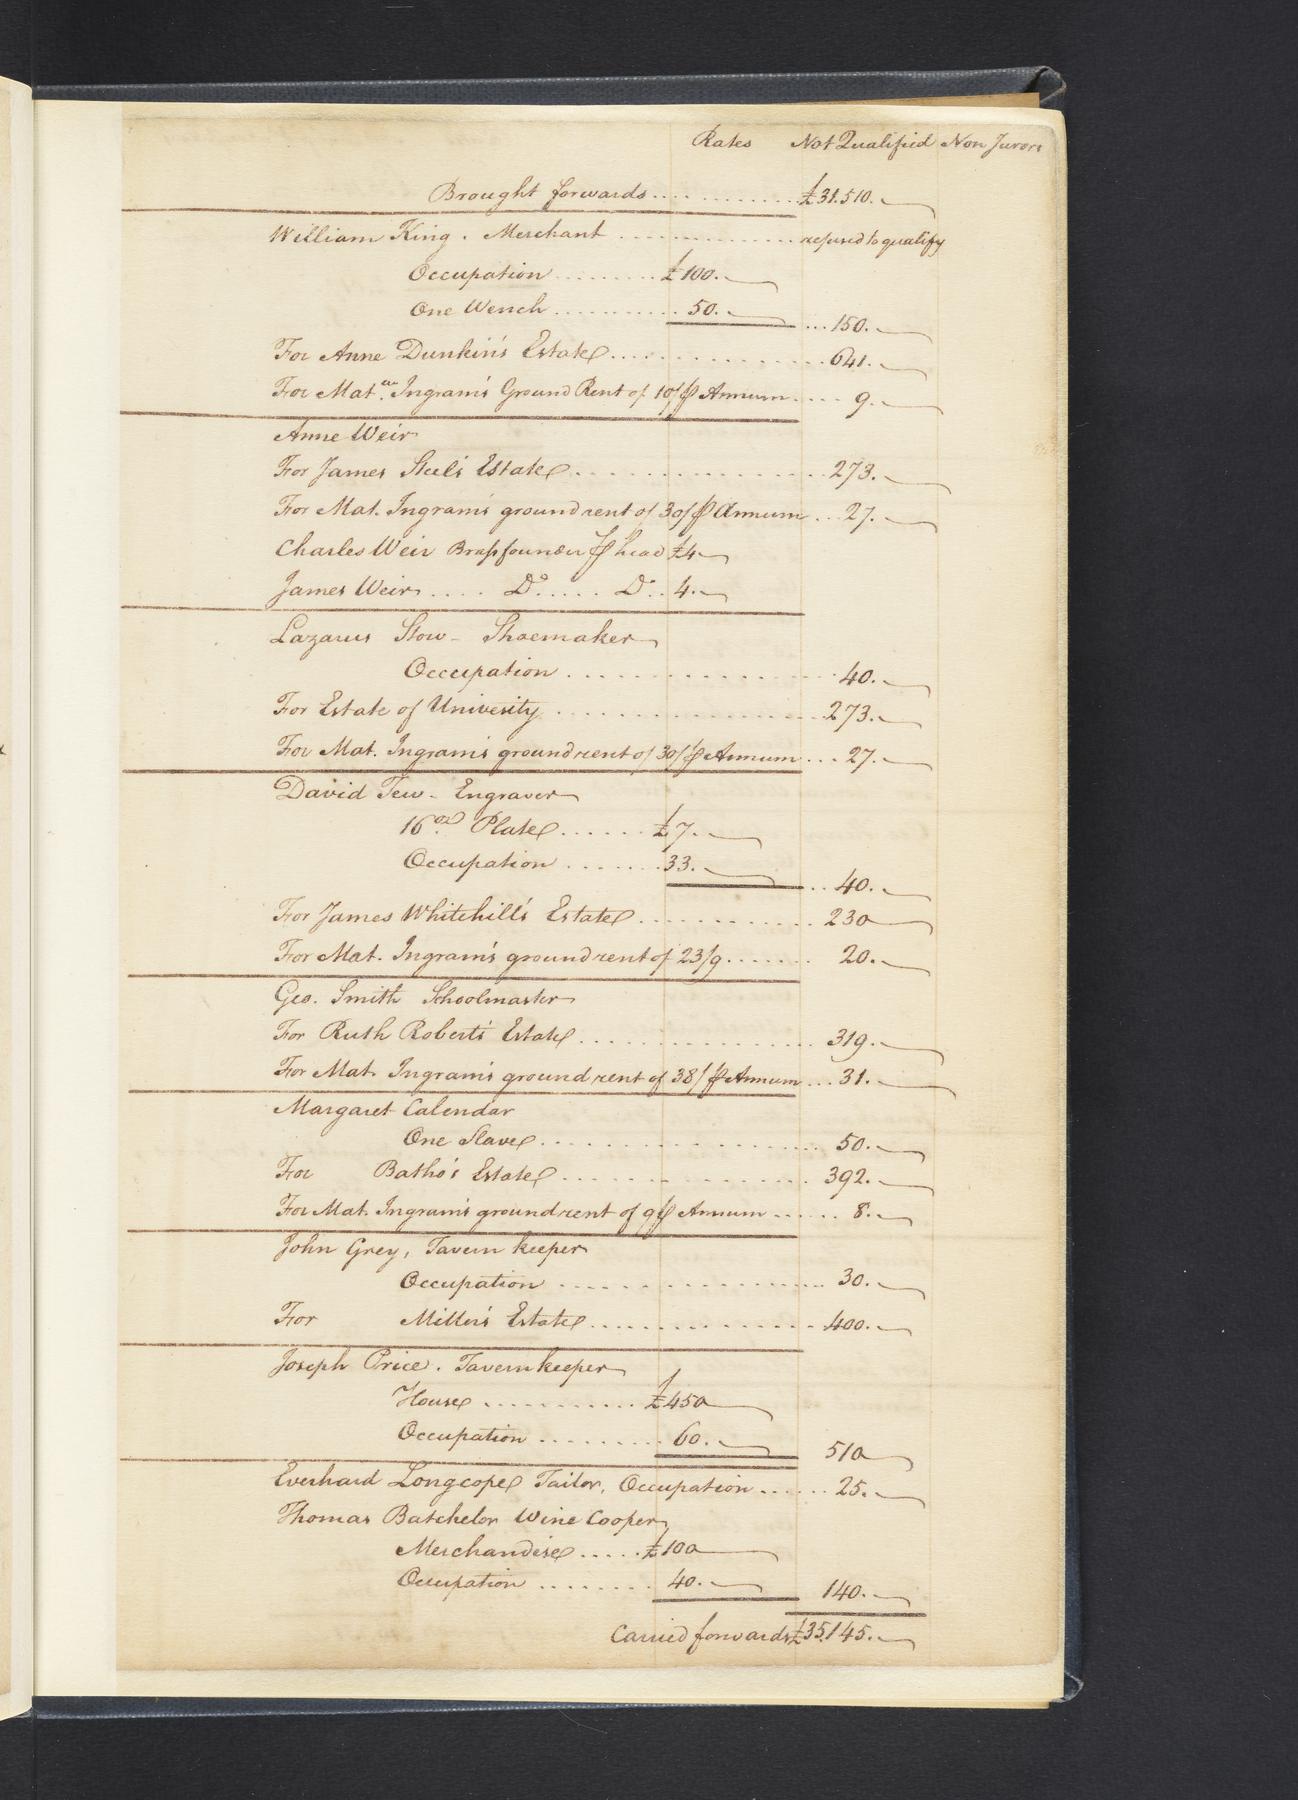 Rates Not Qualified Non Jurors
Brought forwards ............ £31.510.
William King. Merchant ............ refused to qualify
Occupation ......... £100.
One Wench ............ 50. ... 150.
For Anne Dunkin's Estate ............ 641.
For Mat. Ingram's Ground Rent of 10/ ⅌ Annum .... 9.
Anne Weir
For James Steel's Estate ............ 273.
For Mat. Ingram's ground rent of 30/ ⅌ Annum ... 27.
Charles Weir Brassfounder ⅌ head £4
James Weir .... Do ..... Do .. 4.
Lazarus Stow - Shoemaker
Occupation ............ 40.
For Estate of Univesity ............ 273.
For Mat. Ingram's ground rent of 30/ ⅌ Annum ... 27.
David Tew - Engraver
16 oz Plate ...... £7.
Occupation ....... 33. .. 40.
For James Whitehill's Estate ............ 230
For Mat. Ingram's ground rent of 23/9 ....... 20.
Geo. Smith Schoolmaster
For Ruth Robert's Estate ............ 319.
For Mat. Ingram's ground rent of 38/ ⅌ Annum ... 31.
Margaret Calendar
One Slave ............ 50.
For Batho's Estate ............ 392.
For Mat. Ingram's ground rent of 9/ ⅌ Annum ...... 8.
John Grey, Tavern keeper
Occupation ............ 30.
For Miller's Estate ............ 400.
Joseph Price. Tavern keeper
House ............ £450
Occupation ......... 60. 510
Everhard Longcope Tailor, Occupation ...... 25.
Thomas Batchelor Wine Cooper
Merchandise ..... £100
Occupation ........ 40. 140.
Carried forwards £35.145.